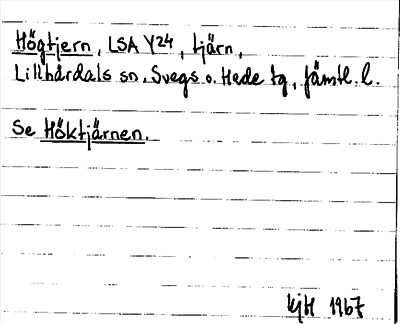 Högtjern, LSA Y24, tjärn,
Lillhärdals sn, Svegs o. Hede tg, Jämtl. l.
Se Höktjärnen.
KjH 1967